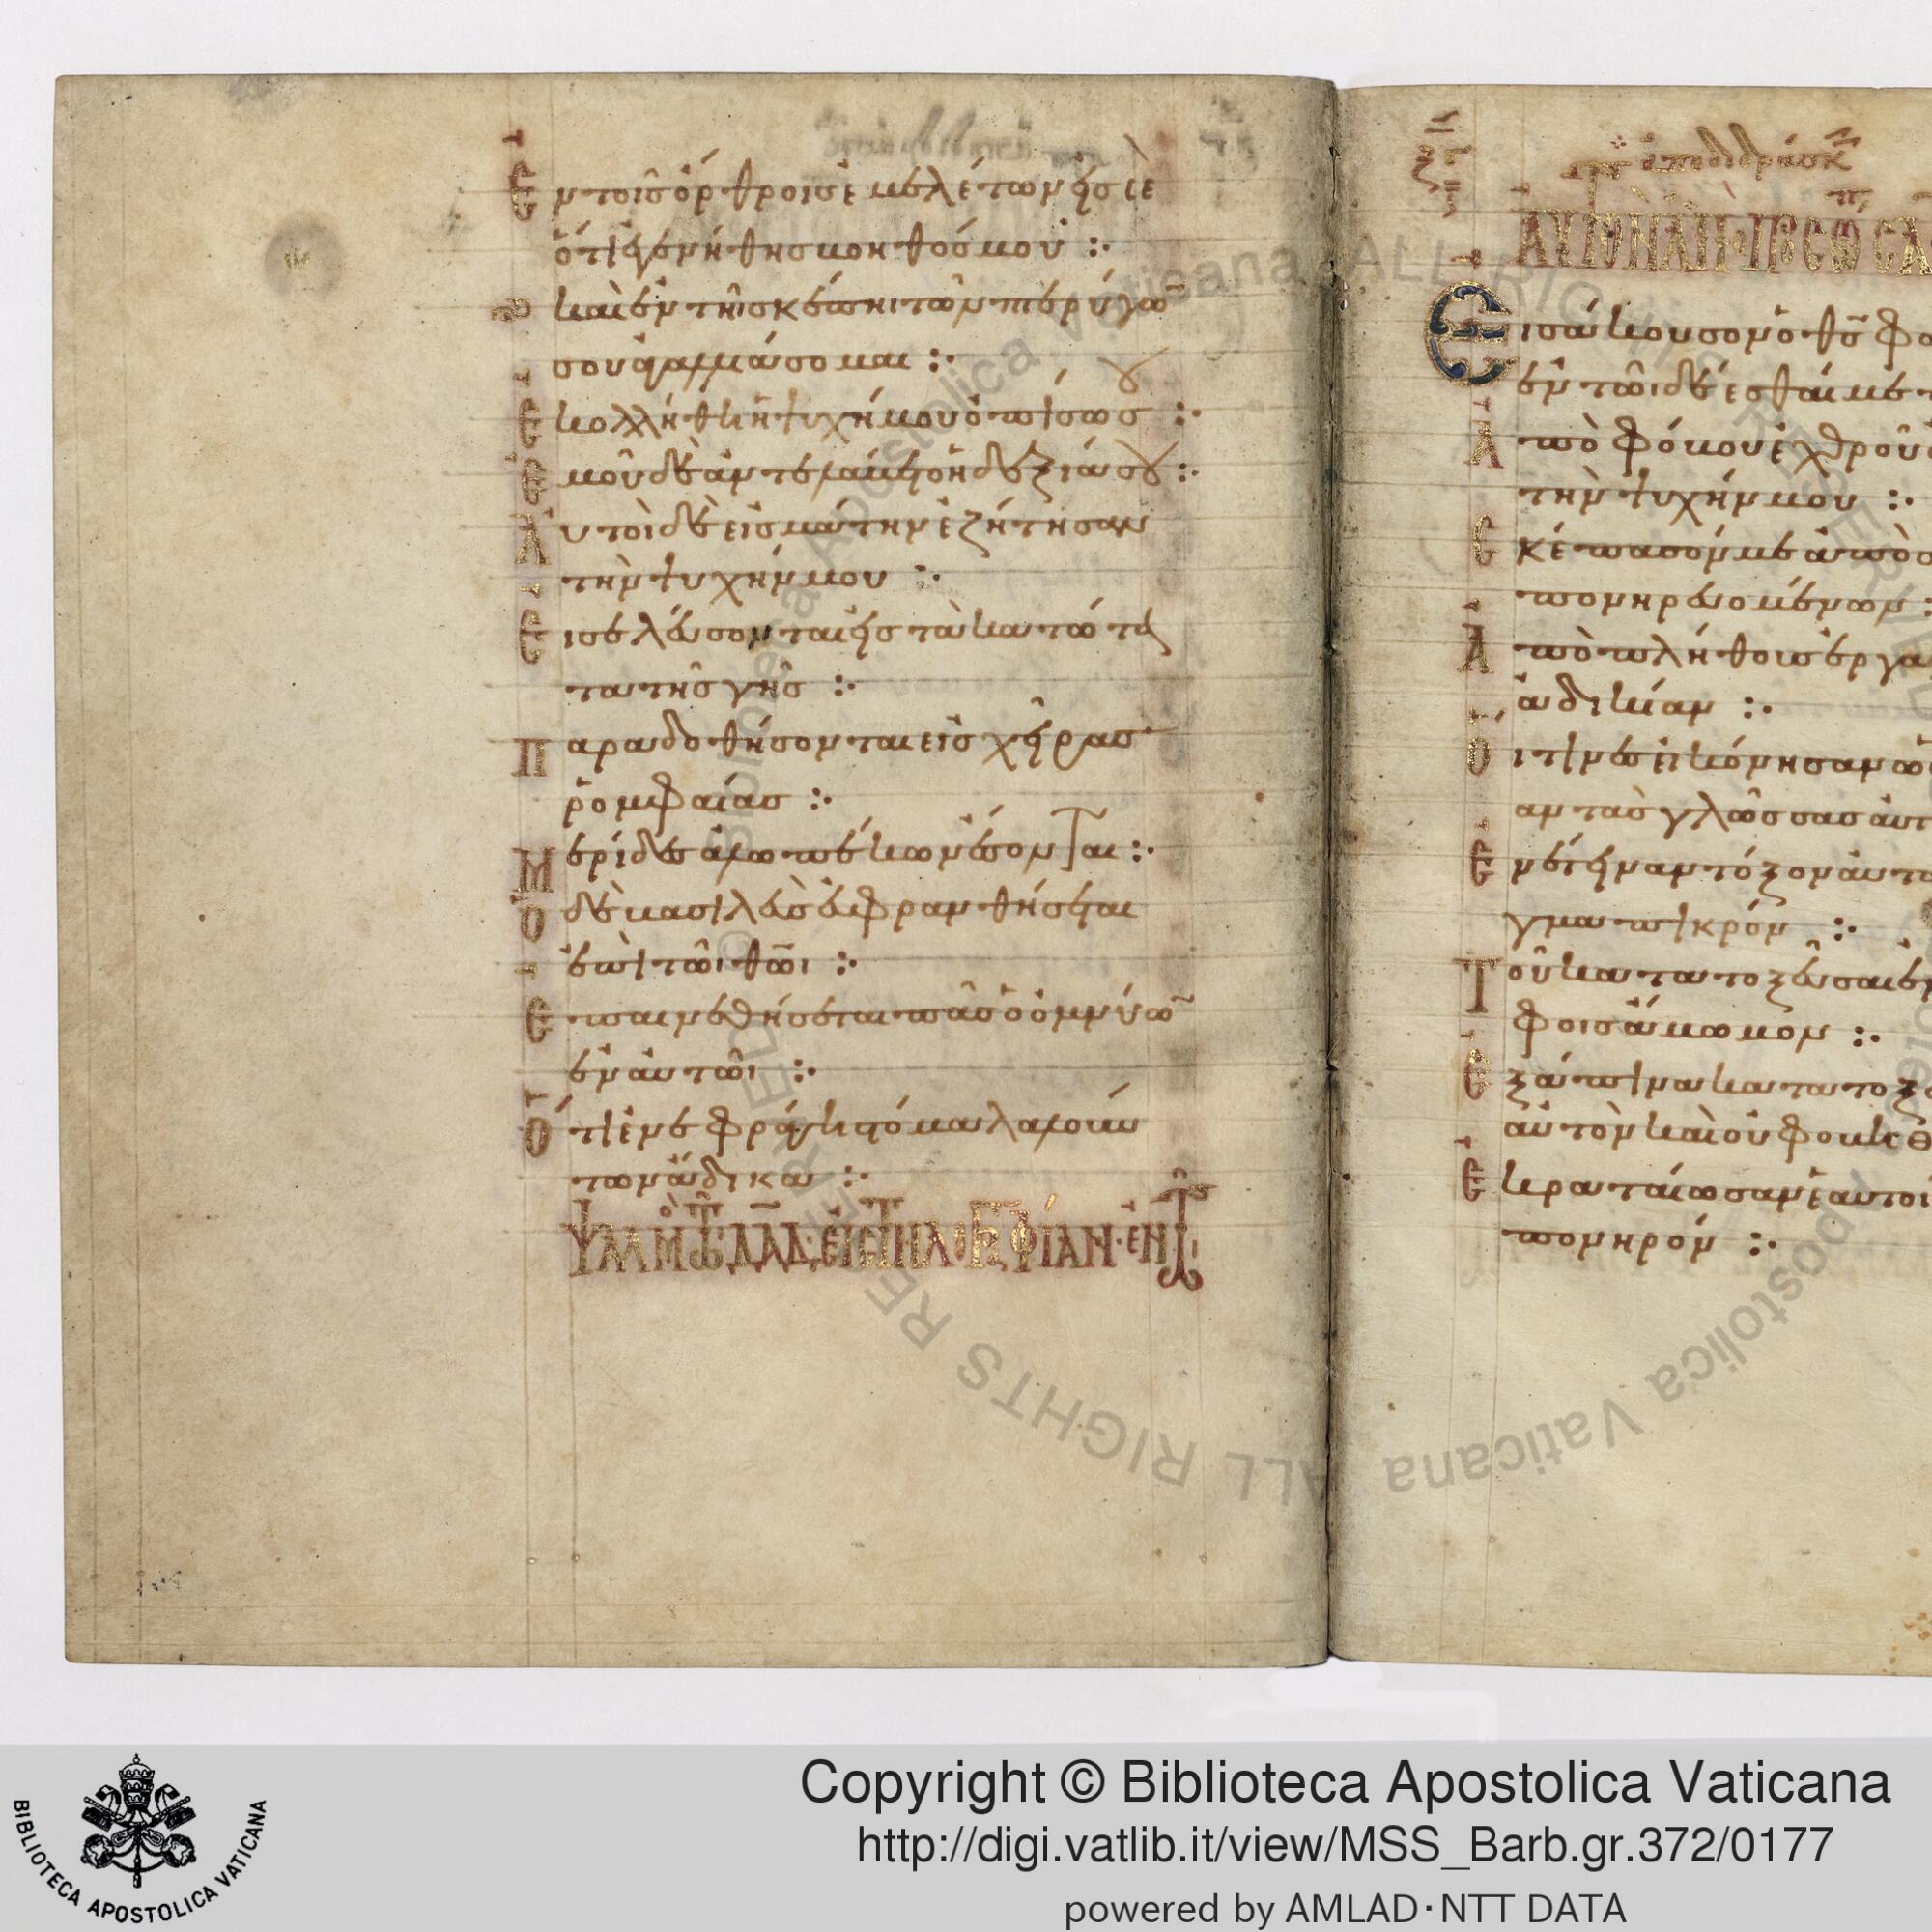 Εν τοῖς ὄρθροις ἐμελέτων εἰς σέ
ὅτι ἐγενήθης βοηθός μου :·
καὶ ἐν τῆι σκέπηι τῶν πτερύγω̅
σου ἀγαλλιάσομαι :·
Εκολλήθη ἡ ψυχή μου ὀπίσω σου :·
Εμοῦ δὲ ἀντελάβετο ἡ δεξιά σου :·
Αυτοὶ δὲ εἰς μάτην ἐζήτησαν
τὴν ψυχήν μου :·
Εισελεύσονται εἰς τὰ κατώτα
τα τῆς γῆς :·
Παραδοθήσονται εἰς χεῖρας
ῥομφαίας :·
Μερίδες ἀλωπέκων ἔσονται :·
Ο δὲ βασιλεὺς εὐφρανθήσεται
ἐπὶ τῶι θ̅ω̅ι :·
Επαινεθήσεται πᾶς ὁ ὀμνύω̅
ἐν αὐτῶι :·
Ὅτι ἐνεφράγη στόμα λαλούν
των ἄδικα :·
ἀποδιδράσκ
Εισάκουσον ὁ θ̅ς̅ φω
ἐν τῶι δέεσθαί με
Απὸ φόβου ἐχθροῦ
τὴν ψυχήν μου :·
Σκέπασόν με ἀπὸ σ
πονηρευομένων :
Απὸ πλήθους ἐργα
ἀδικίαν :·
Οιτινες ἠκόνησαν ὡ
αν τὰς γλώσσας αὐτ
Ενέτειναν τόξον αὐτ
γμα πικρόν :·
Τοῦ κατατοξεῦσαι ἐν
φοις ἄμωμον :·
Εξάπινα κατατοξ
αὐτὸν καὶ οὐ φοβηθ
Εκραταίωσαν ἑαυτοῖ
πονηρόν :·
BIBLIOTECA APOSTOLICA VATICANA
Copyright © Biblioteca Apostolica Vaticana
http://digi.vatlib.it/view/MSS_Barb.gr.372/0177
powered by AMLAD·NTT DATA